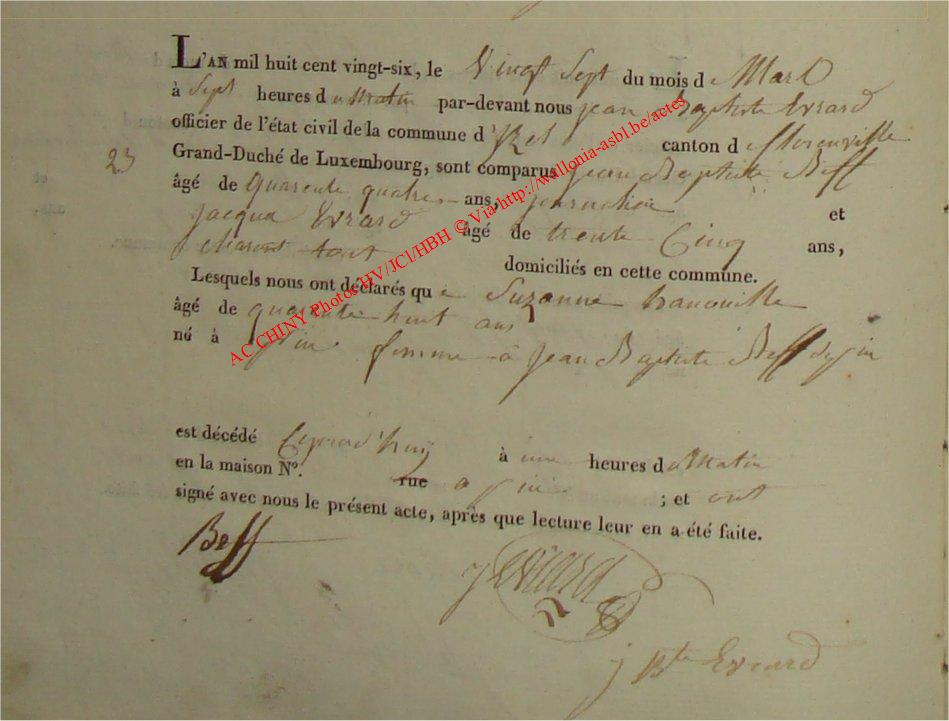 L'AN mil huit cent vingt-six, le Vingt Sept du mois de Mars
à Sept heures du Matin par-devant nous jean Baptiste Evrard
officier de l'état civil de la commune d'Izel canton de florenville
23 Grand-Duché de Luxembourg, sont comparus Jean Baptiste Beff
âgé de quarente quatre ans, journalier et
jacque Evrard âgé de trente Cinq ans,
tout domiciliés en cette commune.
Lesquels nous ont déclarés que Suzanne
âgé de quarente huit ans
né à pin femme à Jean Baptiste Beff de pin
est décédé à une heures du Matin
en la maison N°. rue a pin ; et ont
signé avec nous le présent acte, après que lecture leur en a été faite.
Beff
J Evrard
J Bte Evrard
AC CHINY Photos HV/JCI/HBH © Via http://wallonia-asbl.be/actes